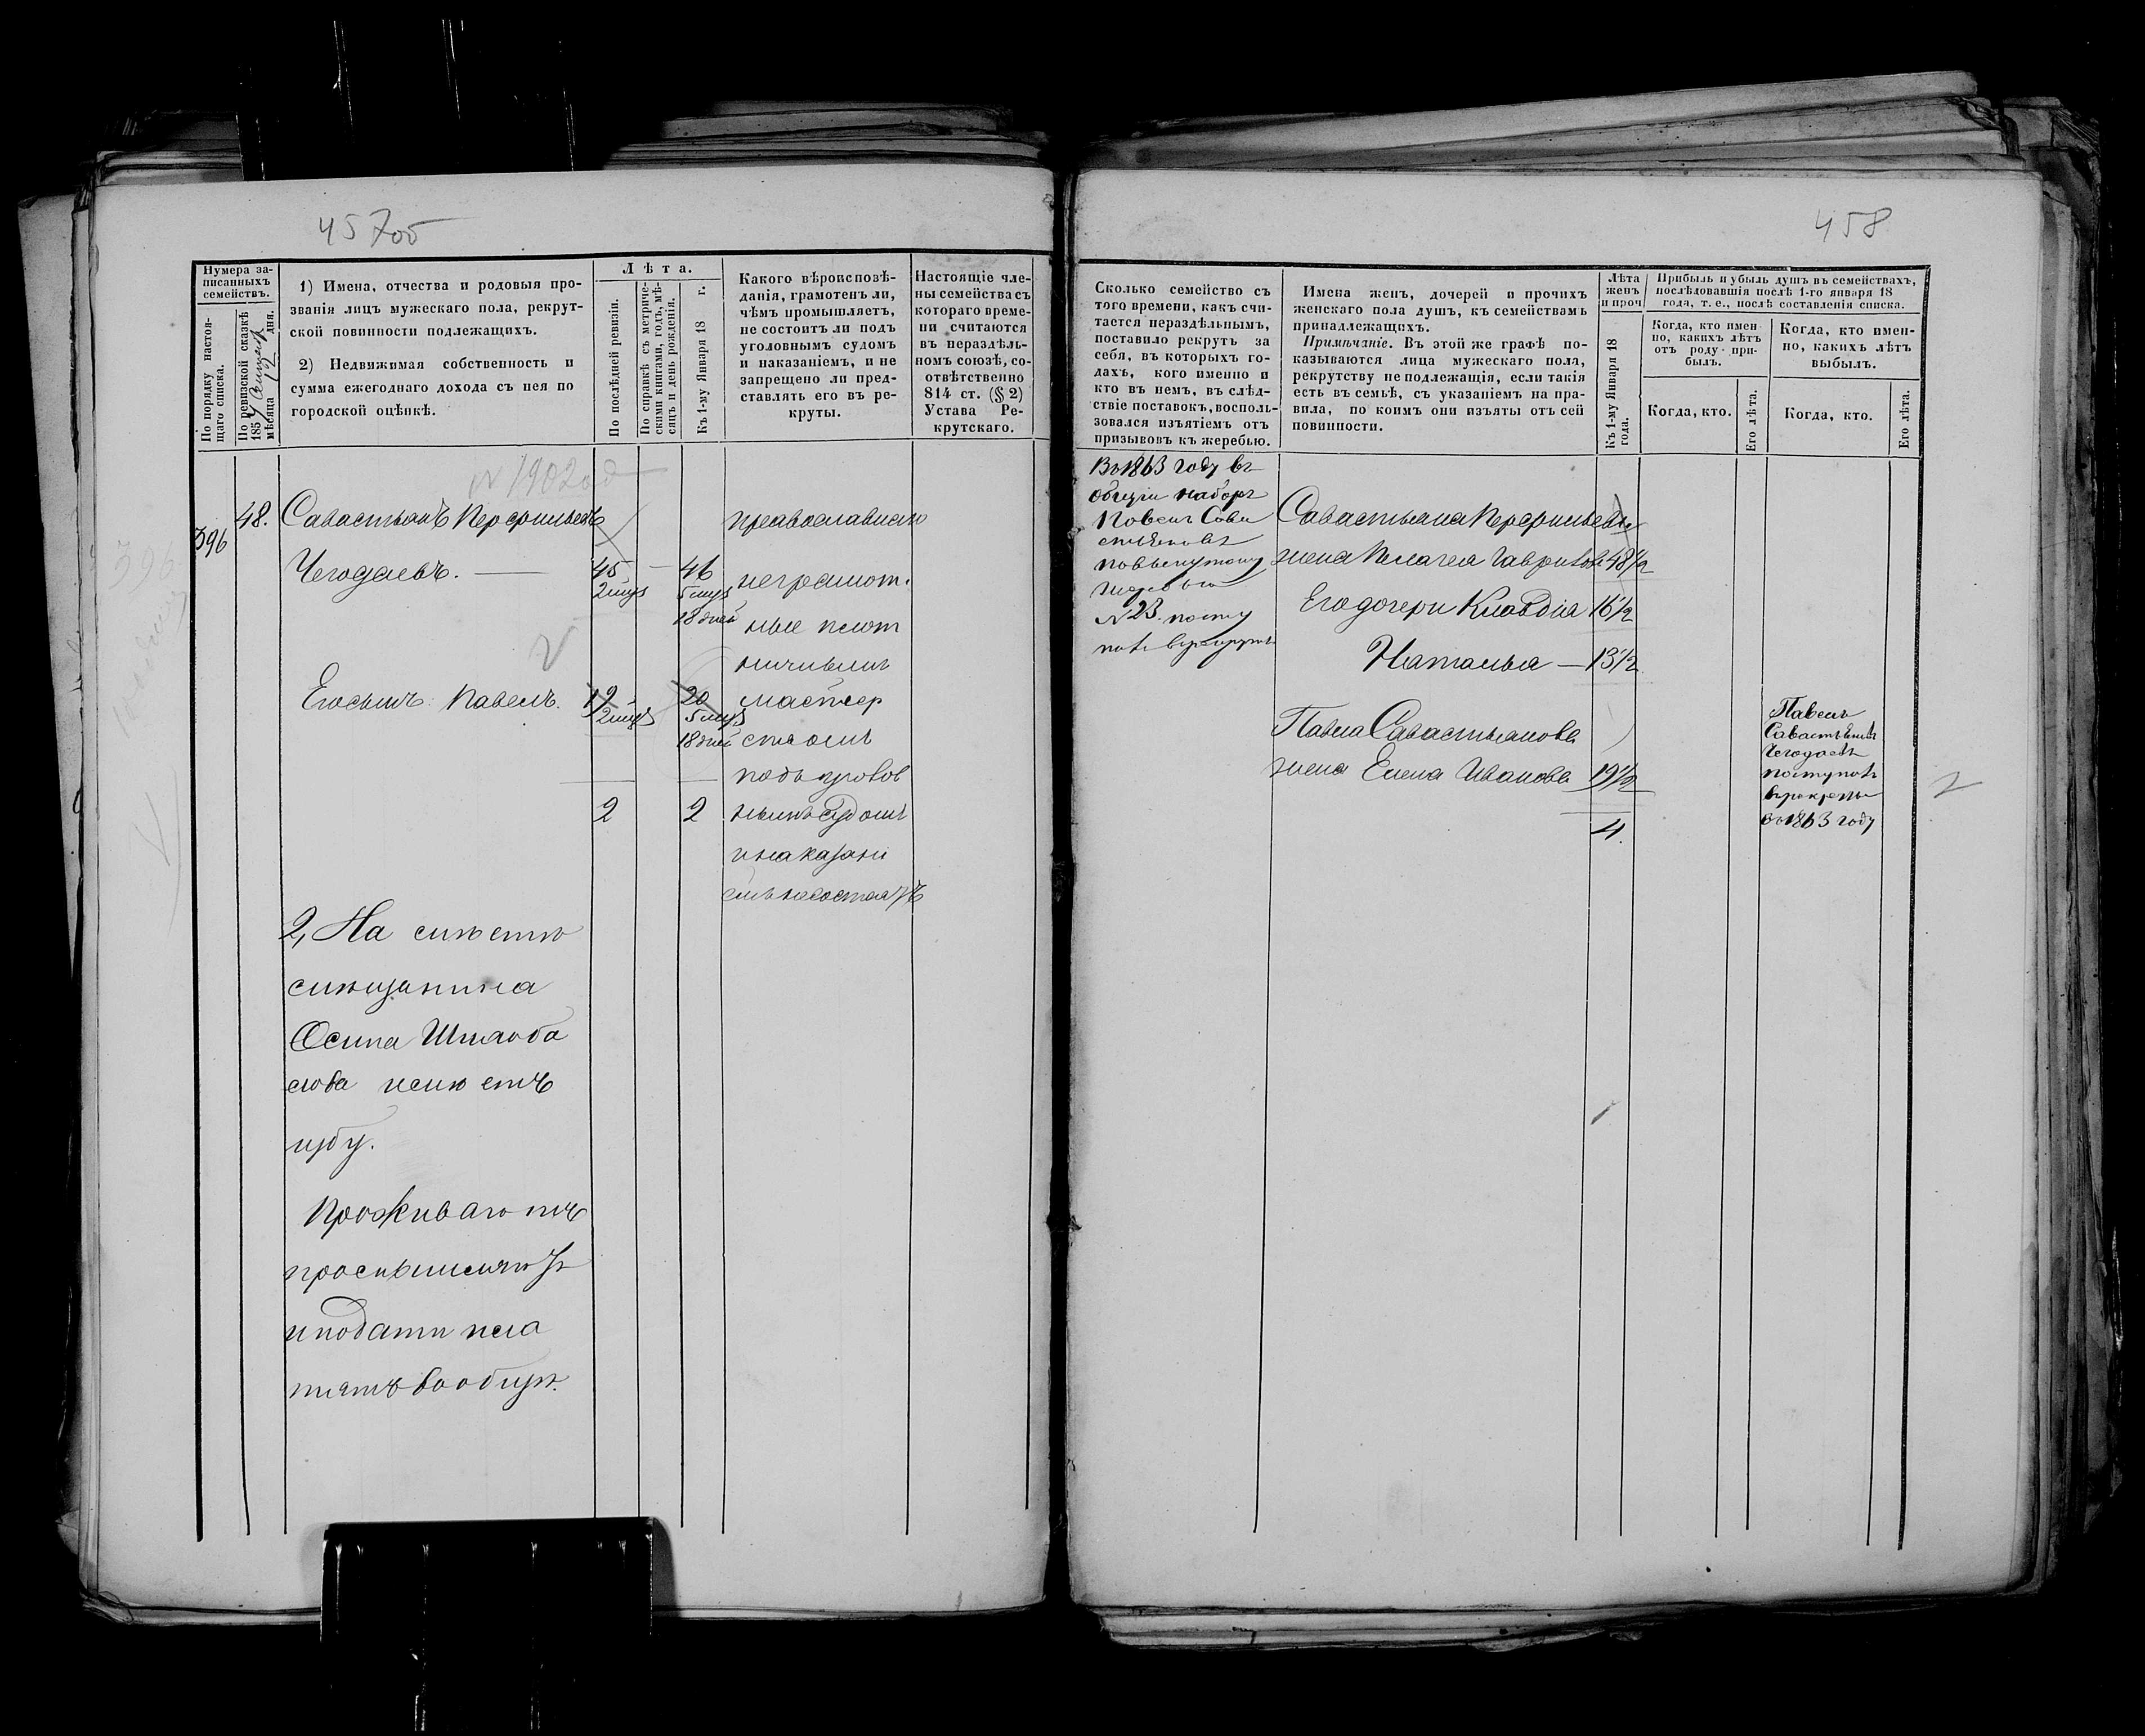 457об
Нумера за-
писанныхъ
семействъ.
По порядку настоя-
щаго списка.
По ревизской сказкѣ
185
мѣсяца 12 дня.
1) Имена, отчества и родовыя про-
званія лицъ мужескаго пола, рекрут-
ской повинности подлежащихъ.
2) Недвижимая собственность и
сумма ежегоднаго дохода съ нея по
городской оцѣнкѣ.
Лѣта.
По послѣдней ревизіи.
По справкѣ съ метриче-
скими книгами, годъ, мѣ-
сяцъ и день рожденія.
Къ 1-му Января 18 г.
Какого вѣроисповѣ-
данія, грамотенъ ли,
чѣмъ промышляетъ,
не состоитъ ли подъ
уголовнымъ судомъ
и наказаніемъ, и не
запрещено ли пред-
ставлять его въ ре-
круты.
Настоящіе чле-
ны семейства съ
котораго време-
ни считаются
въ нераздѣль-
номъ союзѣ, со-
отвѣтственно
814 ст. (§ 2)
Устава Ре-
крутскаго.
396
48. Савастьянъ Перфильевъ
Чегодаевъ. 45 46
2 мцs 5 мцs
18 дней
Его сынъ Павелъ. 19 20
2 мцs 5 мцs
18 дней
2 2
православнаго
неграмот.
ные плот
ничнымъ
мастер
ствомъ
подъ уголов
нымъ судомъ
и наказані
емъ не состоятъ
2, На
Осипа
избу.
Проживаютъ
и подати пла
тятъ вообще.
458
Сколько семейство съ
того времени, какъ счи-
тается нераздѣльнымъ,
поставило рекрутъ за
себя, въ которыхъ го-
дахъ, кого именно и
кто въ немъ, въ слѣд-
ствіе поставокъ, восполь-
зовался изъятіемъ отъ
призывовъ къ жеребью.
Имена женъ, дочерей и прочихъ
женскаго пола душъ, къ семействамъ
принадлежащихъ.
Примѣчаніе. Въ этой же графѣ по-
казываются лица мужескаго пола,
рекрутству не подлежащія, если такія
есть въ семьѣ, съ указаніемъ на пра-
вила, по коимъ они изъяты отъ сей
повинности.
Лѣта
женъ
и проч
Къ 1-му Января 18
года.
Прибыль и убыль душъ въ семействахъ,
послѣдовавшія послѣ 1-го января 18
года, т. е., послѣ составленія списка.
Когда, кто имен-
но, какихъ лѣтъ
отъ роду при-
былъ.
Когда, кто имен-
но, какихъ лѣтъ
выбылъ.
Когда, кто.
Его лѣта.
Когда, кто.
Его лѣта.
Въ 1863 году въ
общій наборъ
Павелъ Сава
стьяновъ
по вынутому
жеребью
№ 23. посту
пилъ въ рекруты
Савастьяна Перфильева
жена Пелагея Гаврилова 48½
Его дочери Клавдіа 16½
Наталья — 13½
Павла Савастьянова
жена Елена Иванова 19½
4.
Павелъ
Савастьяновъ
Чегодаевъ
поступилъ
въ рекруты
въ 1863 году